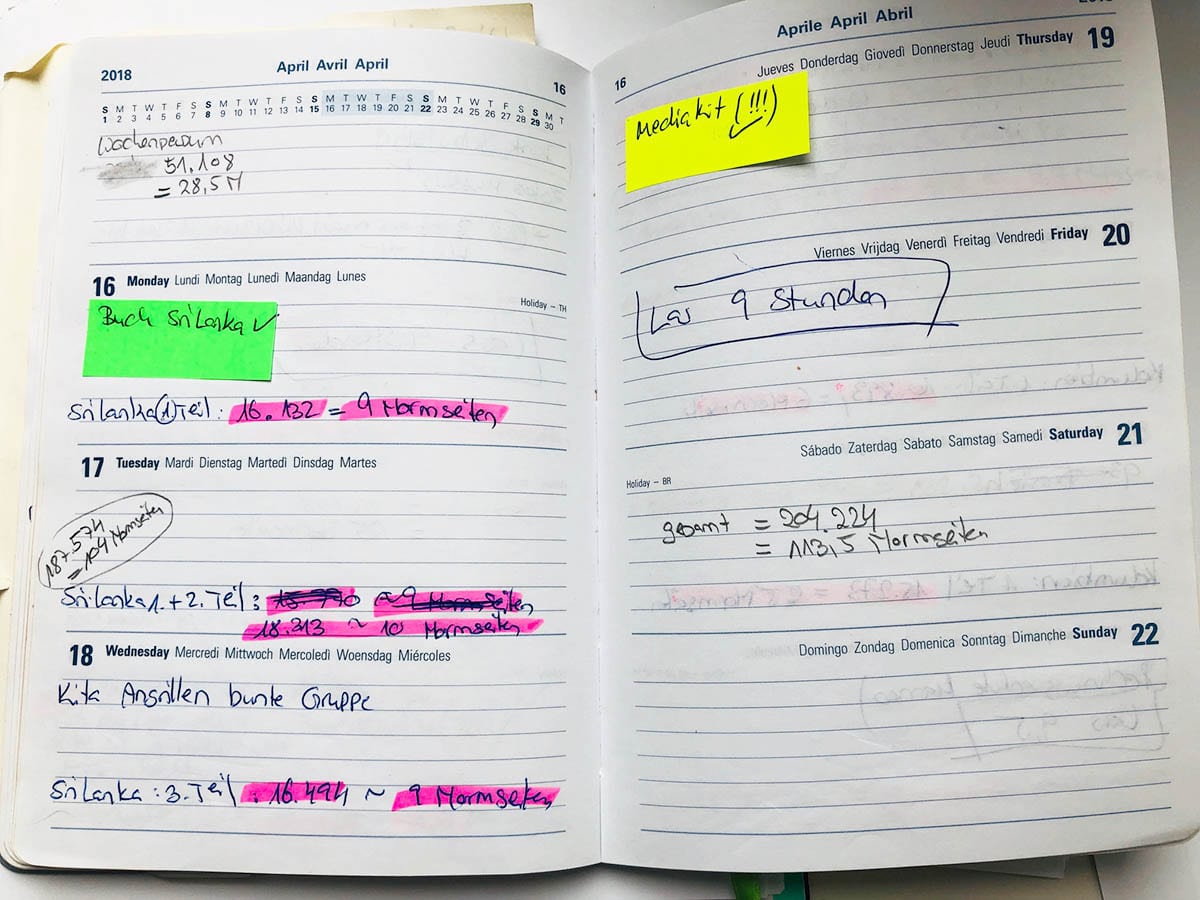 2018
April Avril April
16
S M T W T F S S M T W T F S S M T W T F S S M T W T F S S M T
1 2 3 4 5 6 7 8 9 10 11 12 13 14 15 16 17 18 19 20 21 22 23 24 25 26 27 28 29 30
Wochenpensum
51.108
= 28,5 N
16 Monday Lundi Montag Lunedì Maandag Lunes
Holiday – TH
Buch Sri Lanka ✓
Sri Lanka (1) Teil: 16.132 = 9 Normseiten
17 Tuesday Mardi Dienstag Martedì Dinsdag Martes
187.574
= 104 Normseiten
Sri Lanka 1. + 2. Teil: ≈ 9 Normseiten
18.313 ~ 10 Normseiten
18 Wednesday Mercredi Mittwoch Mercoledì Woensdag Miércoles
Kita Angrillen bunte Gruppe
Sri Lanka: 3. Teil: 16.494 ~ 9 Normseiten
Aprile April Abril
16
Jueves Donderdag Giovedì Donnerstag Jeudi Thursday 19
Mediakit (!!!)
✓
Viernes Vrijdag Venerdì Freitag Vendredi Friday 20
Las 9 Stunden
Sábado Zaterdag Sabato Samstag Samedi Saturday 21
Holiday – BR
gesamt = 204.224
= 113,5 Normseiten
Domingo Zondag Domenica Sonntag Dimanche Sunday 22